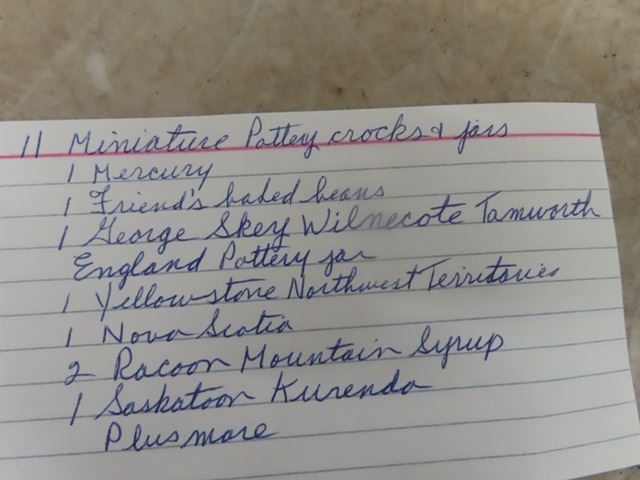 11 Miniature Pottey crocks & jars
1 Mercury
1 Friend's baked beans
1 George Skey Wilnecote Tamworth
England Pottery jar
1 Yellowstone Northwest Territories
1 Nova Scotia
2 Racoon Mountain Syrup
1 Saskatoon Kurenda
Plus more